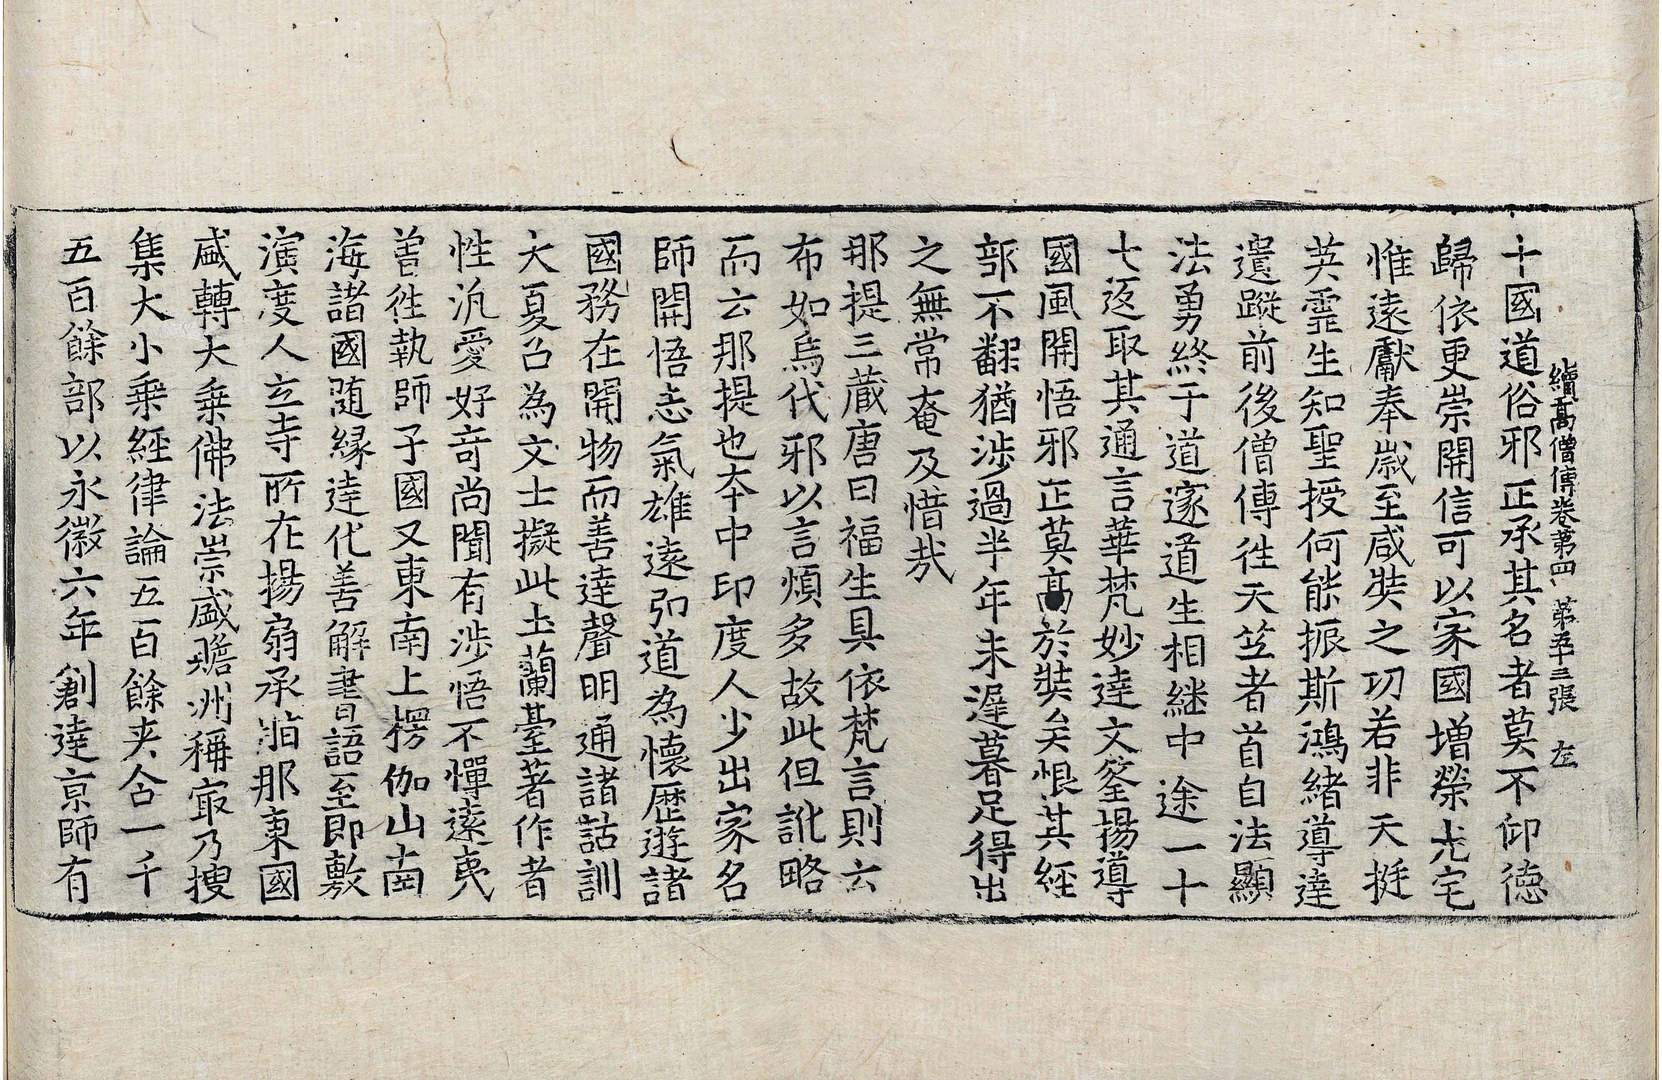 續高僧傳卷第四　第五十三張　左
十國道俗邪正承其名者莫不仰德
歸依更崇開信可以家國增榮光宅
惟遠獻奉歲至咸奘之功若非天挺
英靈生知聖授何能振斯鴻緒導達
遺蹤前後僧傳往天竺者首自法顯
法勇終于道邃道生相継中途一十
七返取其通言華梵妙達文筌揚導
國風開悟邪正莫高於奘矣恨其經
部不翻猶涉過半年未遲暮足得出
之無常奄及惜哉
那提三藏唐曰福生具依梵言則云
布如烏代邪以言煩多故此但訛略
而云那提也本中印度人少出家名
師開悟志氣雄遠弘道為懷歷遊諸
國務在開物而善達聲明通諸詁訓
大夏召為文士擬此土蘭臺著作者
性汎愛好奇尚聞有涉悟不憚遠夷
曾往執師子國又東南上楞伽山南
海諸國随緣達化善解書語至即敷
演度人立寺所在揚扇承脂那東國
盛轉大乗佛法崇盛贍洲稱㝡乃搜
集大小乗經律論五百餘夾合一千
五百餘部以永徽六年創達京師有